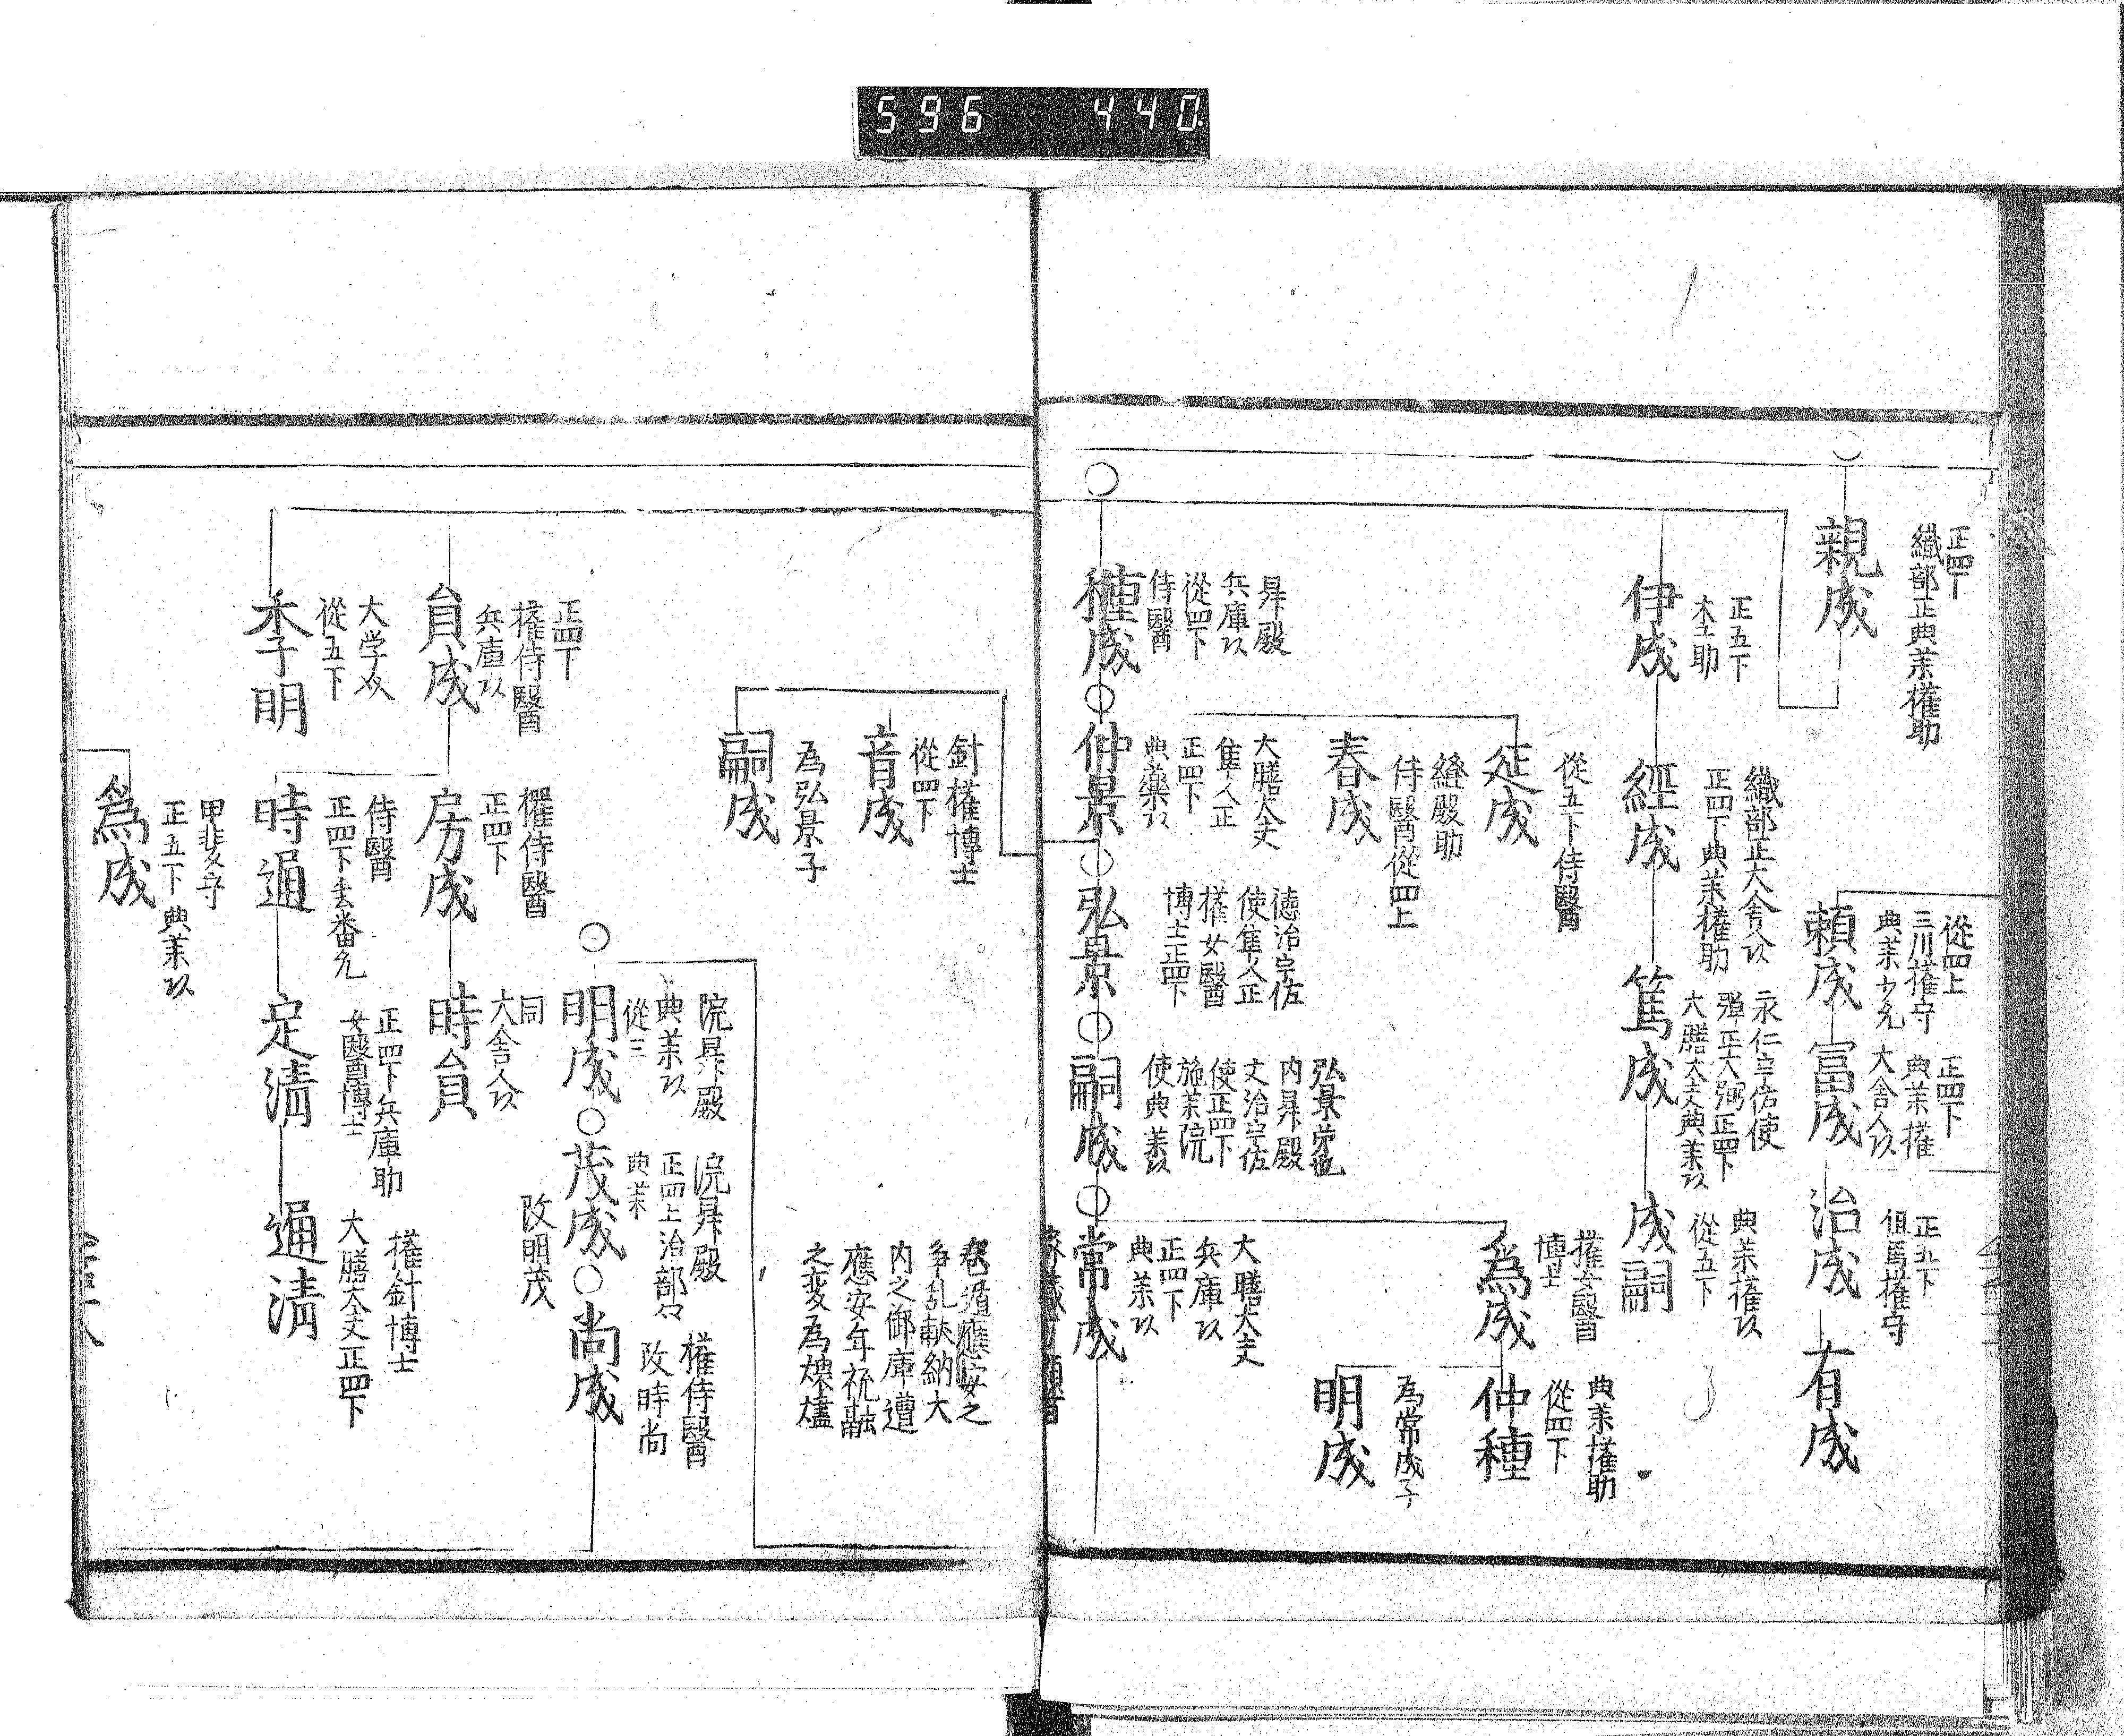 596 440
正四下
織部正典茱権助
親成
従四上
三川権守
典茱少允
頼成
正四下
典茱権
大舎人以
富成
正五下
但馬権守
治成
有成
正五下
木工助
伊成
織部正大舎人以
正四下典茱権助
経成
永仁宇佐使
弾正大弼正四下
大膳大夫典茱以
篤成
典茱権以
従五下
成嗣
従五下侍醫
延成
縫殿助
侍醫従四上
春成
権女醫
博士
為成
典茱権助
従四下
仲種
為常成子
明成
昇殿
兵庫以
従四下
侍醫
種成
大膳大夫
隼人正
正四下
典藥以
仲景
徳治宇佐
使隼人正
権女醫
博士正四下
弘景
弘景弟也
内昇殿
文治宇佐
使正四下
施茱院
使典茱以
嗣成
大膳大夫
兵庫以
正四下
典茱以
常成
針権博士
従四下
音成
為弘景子
嗣成
遁應安之
乱献納大
内之御庫遭
應安年祝融
之変為煨燼
院昇殿
典茱以
従三
明成
院昇殿
正四上治部々
典茱
茂成
改明茂
権侍醫
改時尚
尚成
正四下
権侍醫
兵庫以
員成
権侍醫
正四下
房成
同
大舎人以
時員
大学从
従五下
季明
侍醫
正四下玄番允
時通
正四下兵庫助
女醫博士
定清
権針博士
大膳大夫正四下
通清
甲斐守
正五下典茱以
為成